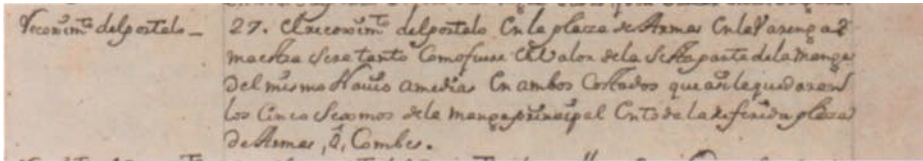 Reconoçim.to del portalo_
27. El reconoçim.to del portalo En la plaza de Armas En la Varenga
maestra sera tanto Como fuere El Valor de la Sesta parte de la manga
del mismo Navio a medias En ambos Costados que asi le quedaran
los Cinco Sesmos de la manga prinçipal Cnto de la referida plaza
de Armas, ô, Combes.